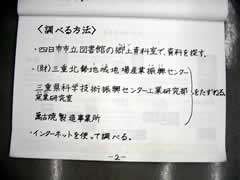 〈調べる方法〉
・四日市市立図書館の郷土資料室で、資料を探す。
・(財)三重北勢地域地場産業振興センター
三重県科学技術振興センター工業研究部
窯業研究室
をたずねる。
萬古焼製造事業所
・インターネットを使って調べる。
-2-